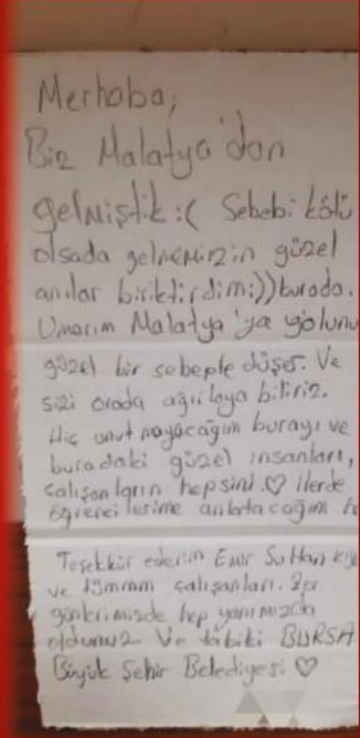 Merhaba;
Biz Malatya'dan
gelmiştik :( Sebebi kötü
olsada gelmemizin güzel
anılar biriktirdim:)) burada.
Umarım Malatya'ya yolunu
güzel bir sebeple düşer. Ve
sizi orada ağırlaya biliriz.
Hiç unutmayacağım burayı ve
buradaki güzel insanları,
çalışanların hepsini.♡ ilerde
öğrencilerime anlatacağım
Teşekkür ederim Emir Sultan
ve tümmm çalışanları. Zor
günlerimizde hep yanımızda
oldunuz. Ve tabiki BURSA
Büyük Şehir Belediyesi ♡